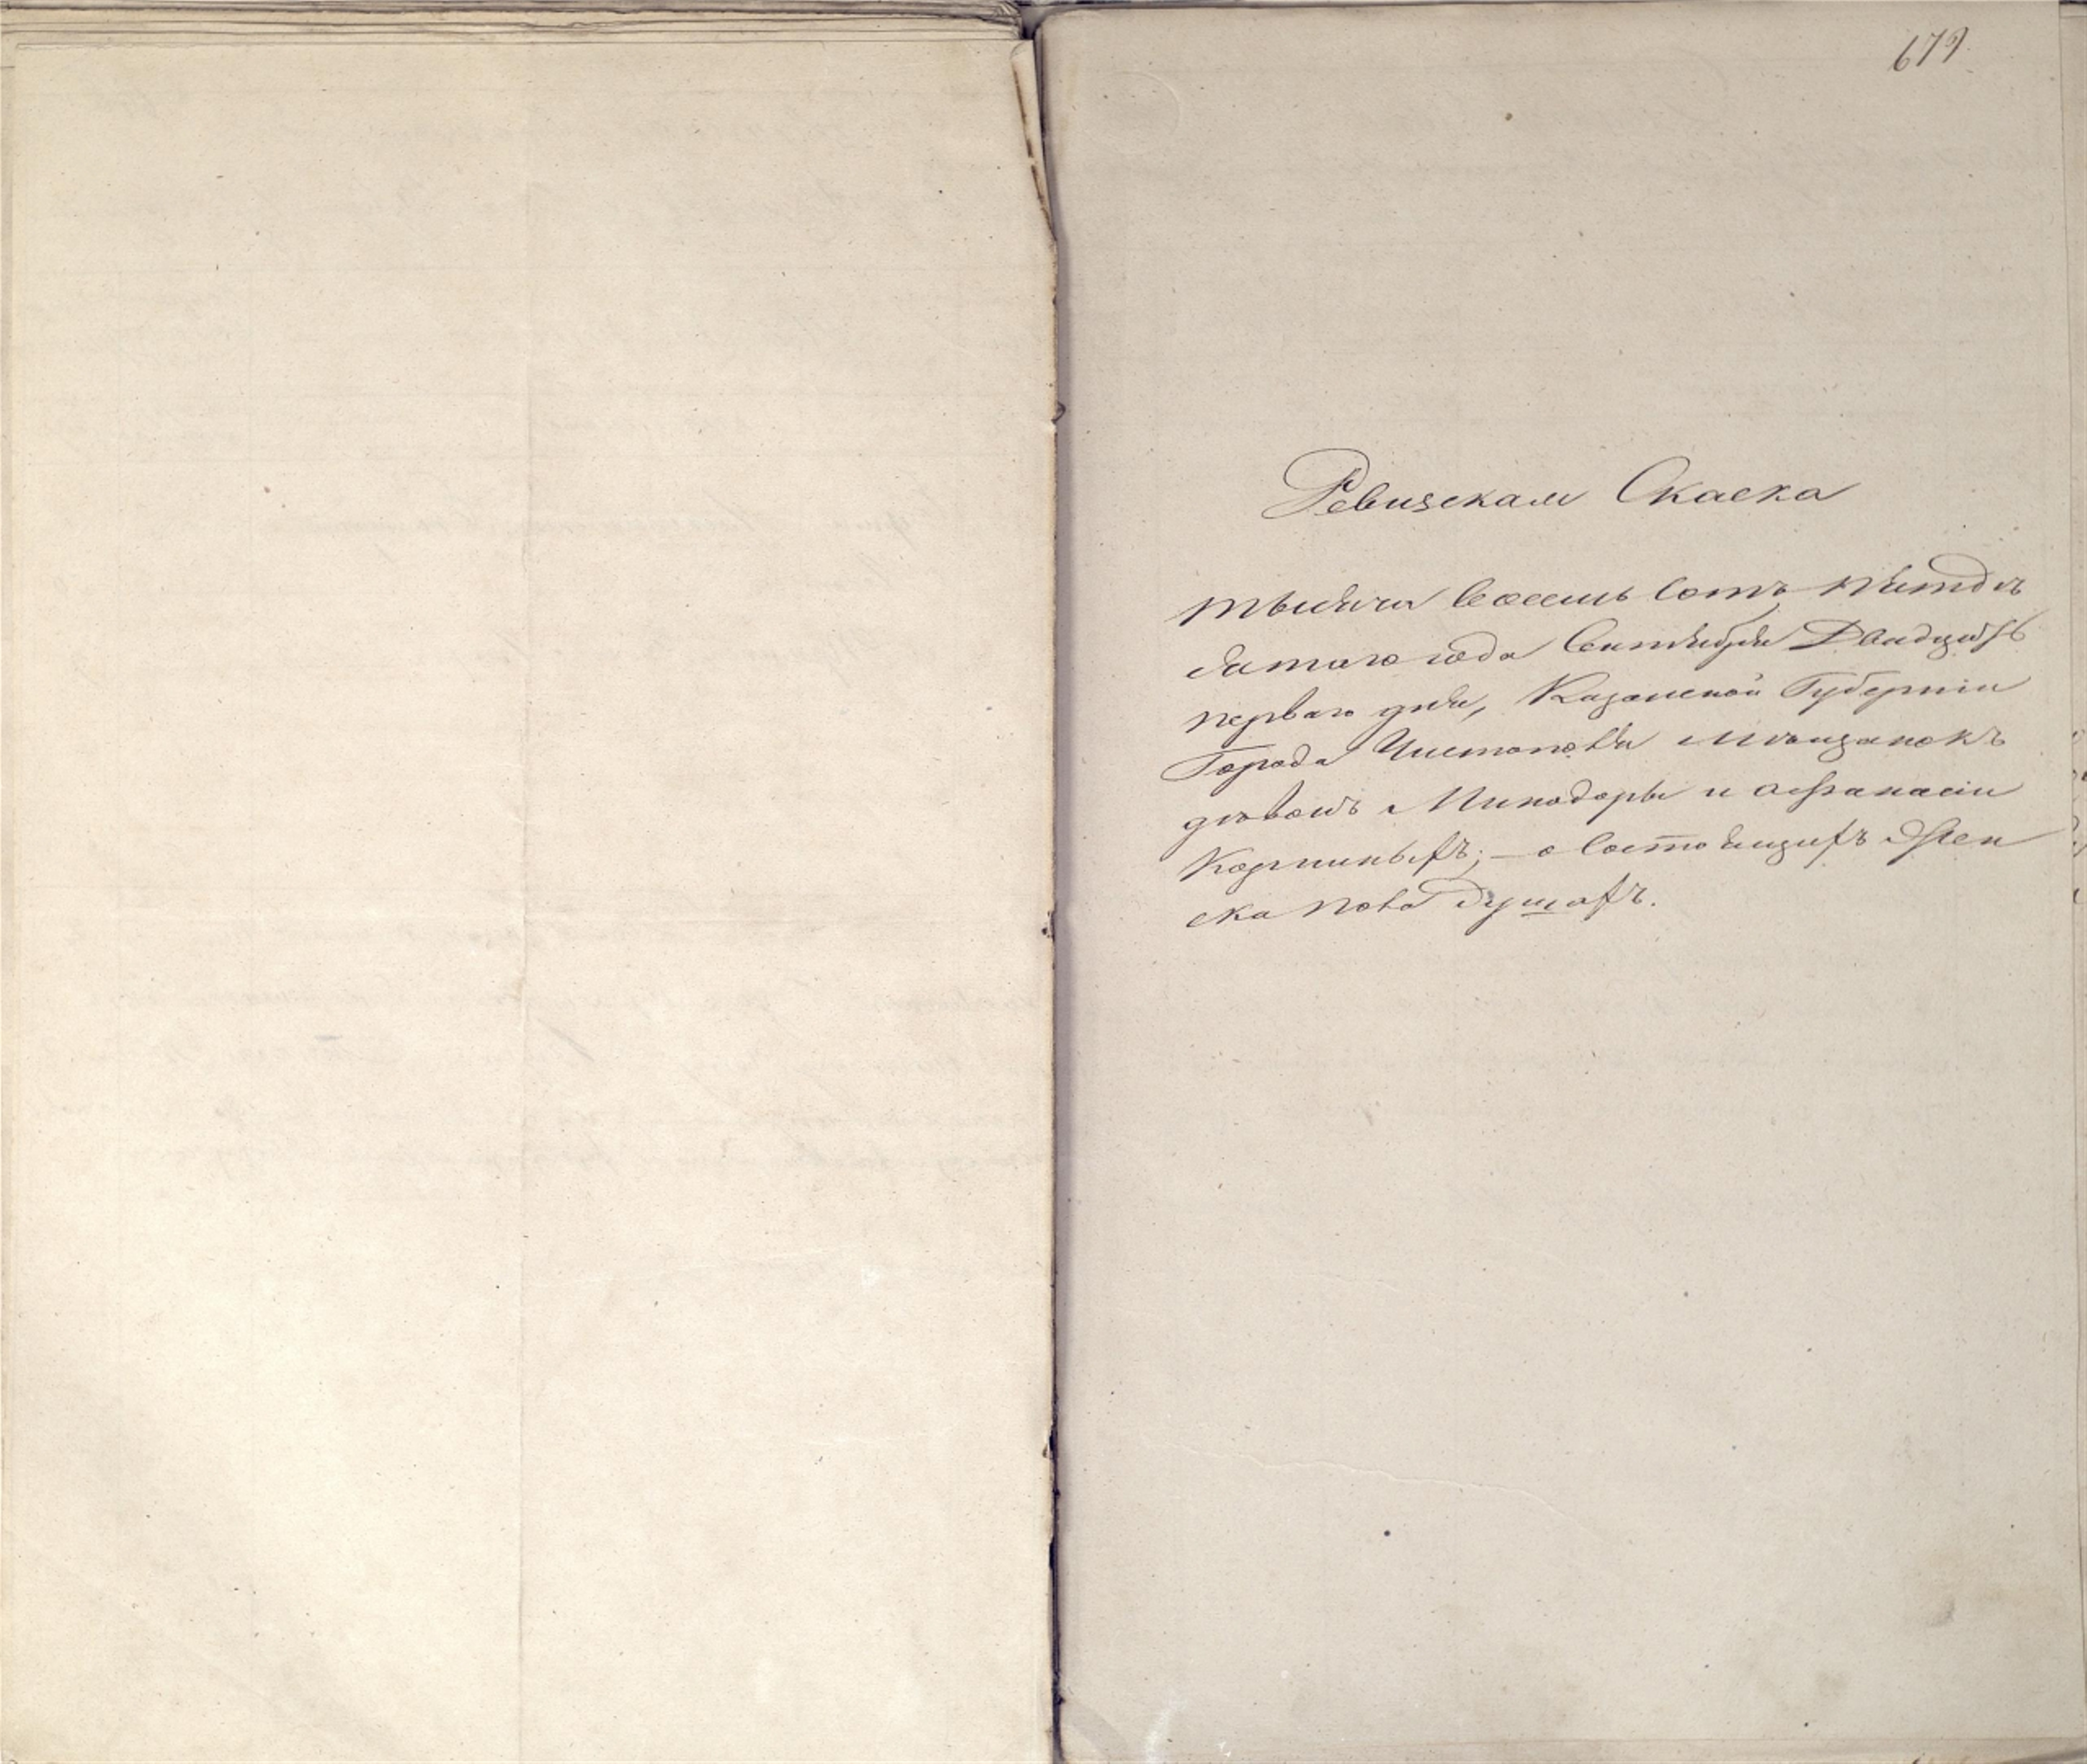 679
Ревизская Скаска
тысяча восемь сотъ пятдѣ
сятаго года Сентября Двадцать
перваго дня, Казанской Губерніи
Города Чистополя мѣщанокъ
дѣвокъ Минодоры и Афанасіи
Корминыхъ; — о состоящихъ Жен
ска пола душахъ.